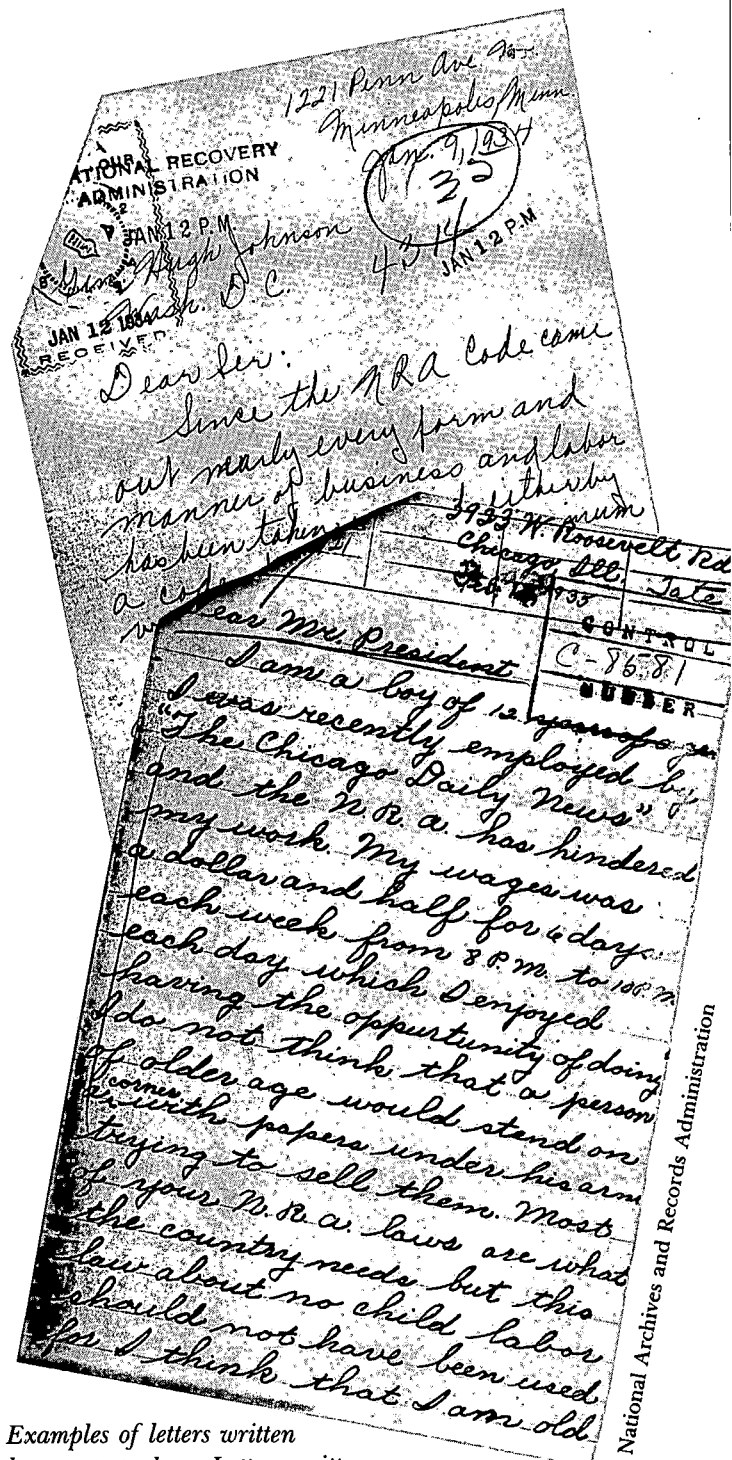 1221 Penn Ave No.
Minneapolis, Minn
Jan. 9, 1934
32
4214
JAN 12 P.M
OUR
NATIONAL RECOVERY
ADMINISTRATION
JAN 12 P.M
Gen. Hugh Johnson
Wash. D C.
JAN 12 1934
RECEIVED
Dear Sir:
Since the NRA Code came
out nearly every form and
manner of business and labor
has been taken either by
a code
3933 W. Roosevelt Rd
Chicago, Ill.
1935
CONTROL
C-8581
NUMBER
ear Mr. President
I am a boy of 12 years of age
I was recently employed by
"The Chicago Daily News"
and the N.R.A. has hindered
my work. My wages was
a dollar and half for 6 days
each week from 8 P.M. to 10 P.M
each day which I enjoyed
having the oppurtunity of doing
I do not think that a person
of older age would stand on
a corner with papers under his arm
trying to sell them. Most
of your N.R.A. laws are what
the country needs but this
law about no child labor
should not have been used
for I think that I am old
National Archives and Records Administration
Examples of letters written